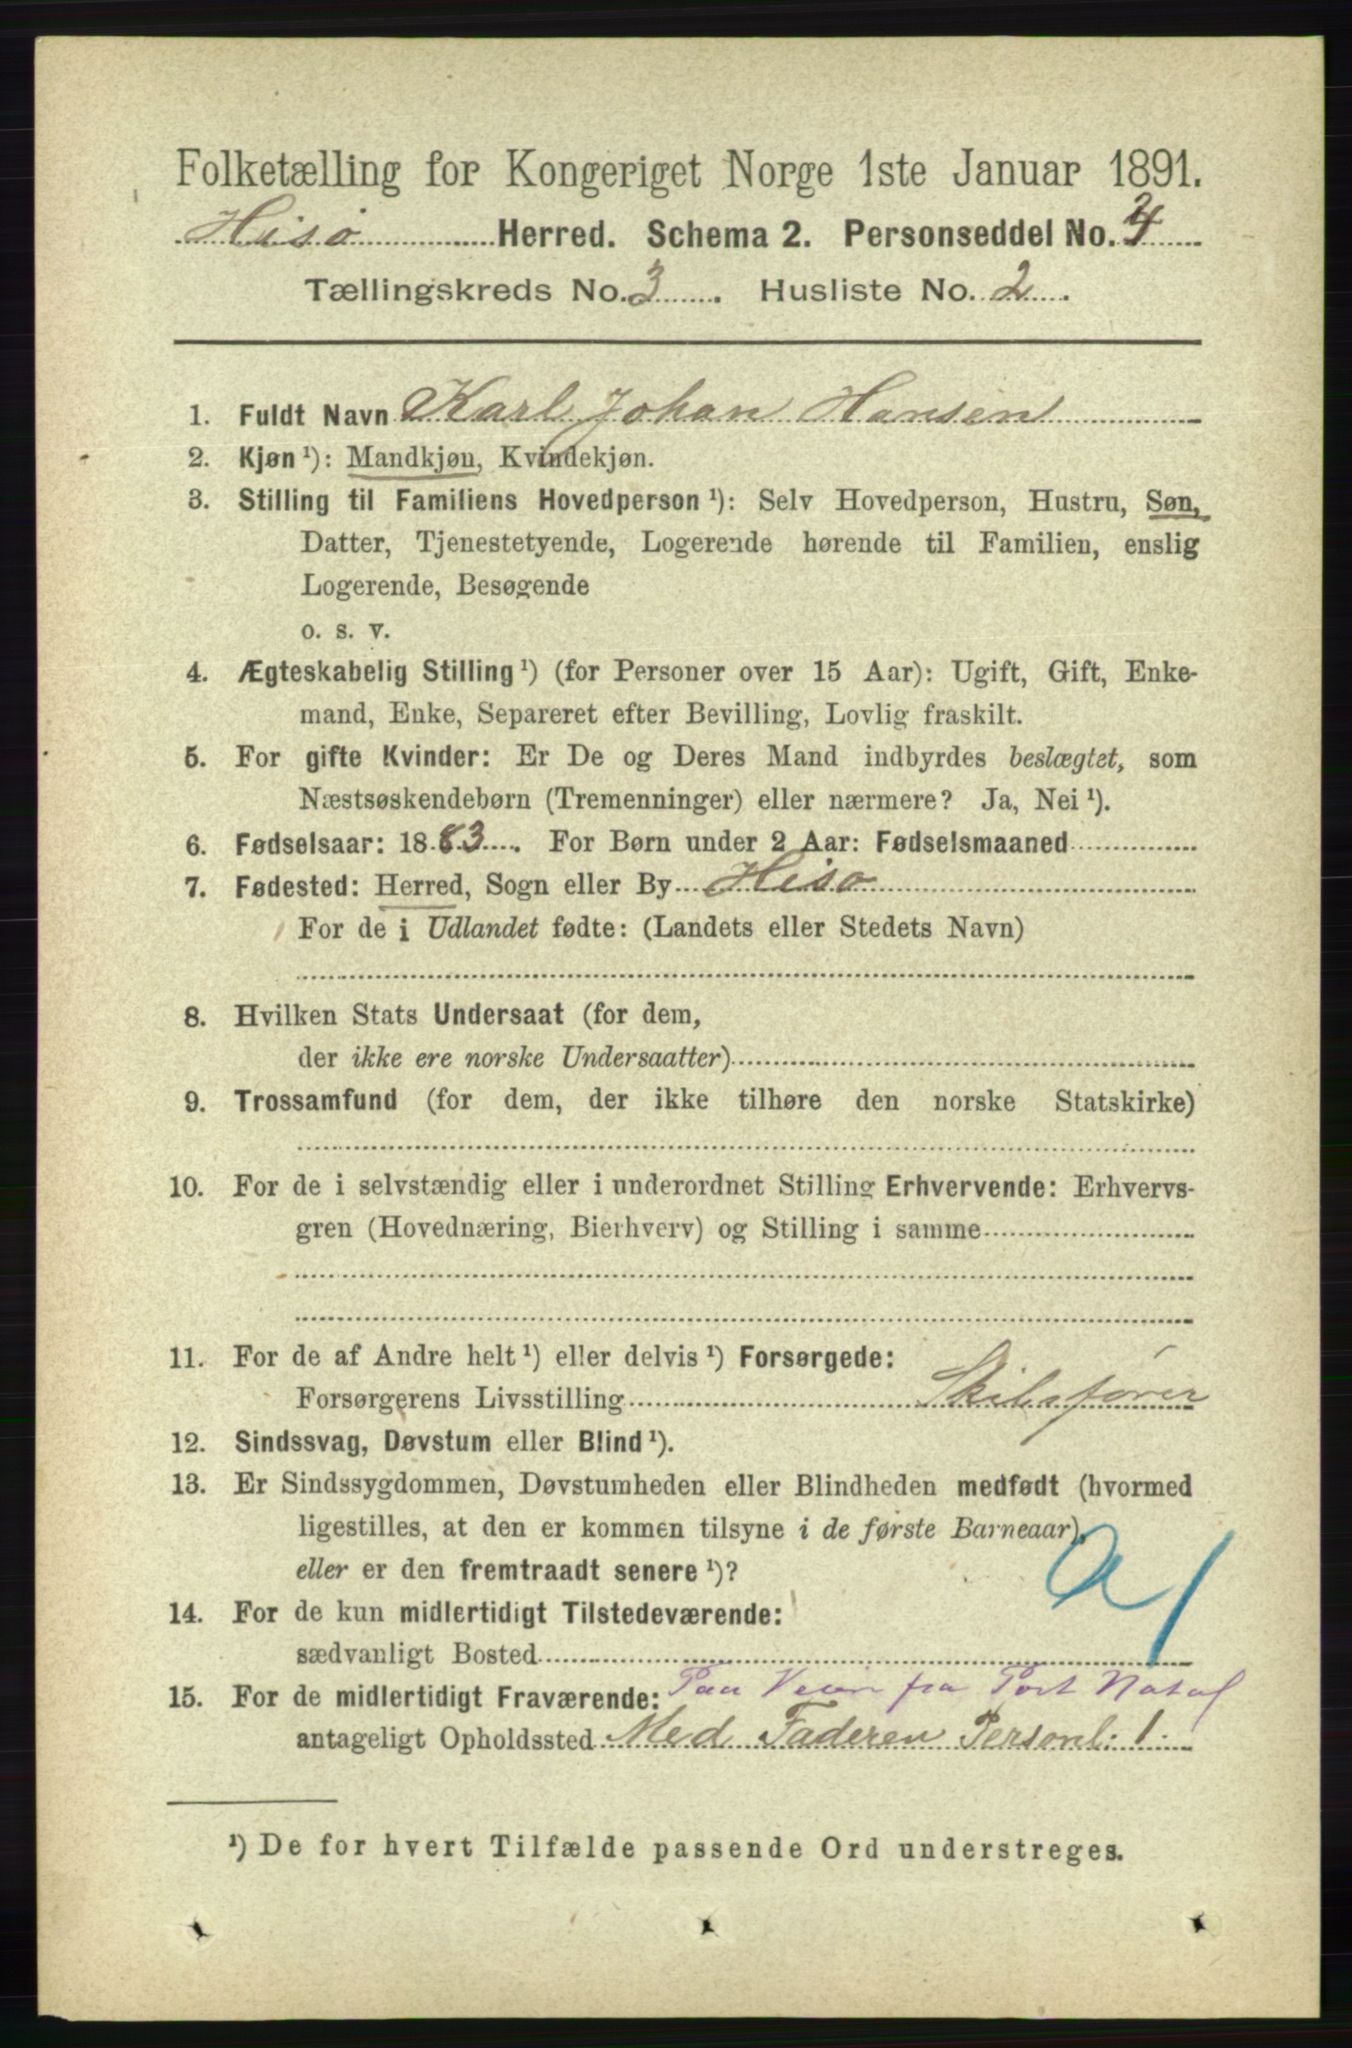 Folketælling for Kongeriget Norge 1ste Januar 1891.
Hisø Herred. Schema 2. Personseddel No. 4
Tællingskreds No. 3. Husliste No. 2.
1. Fuldt Navn Karl Johan Hansen
2. Kjøn ¹): Mandkjøn, Kvindekjøn.
3. Stilling til Familiens Hovedperson ¹): Selv Hovedperson, Hustru, Søn,
Datter, Tjenestetyende, Logerende hørende til Familien, enslig
Logerende, Besøgende
o. s. v.
4. Ægteskabelig Stilling ¹) (for Personer over 15 Aar): Ugift, Gift, Enke-
mand, Enke, Separeret efter Bevilling, Lovlig fraskilt.
5. For gifte Kvinder: Er De og Deres Mand indbyrdes beslægtet, som
Næstsøskendebørn (Tremenninger) eller nærmere? Ja, Nei ¹).
6. Fødselsaar: 1883. For Børn under 2 Aar: Fødselsmaaned
7. Fødested: Herred, Sogn eller By Hisø
For de i Udlandet fødte: (Landets eller Stedets Navn)
8. Hvilken Stats Undersaat (for dem,
der ikke ere norske Undersaatter)
9. Trossamfund (for dem, der ikke tilhøre den norske Statskirke)
10. For de i selvstændig eller i underordnet Stilling Erhvervende: Erhvervs-
gren (Hovednæring, Bierhverv) og Stilling i samme
11. For de af Andre helt ¹) eller delvis ¹) Forsørgede:
Forsørgerens Livsstilling Skibsfører
12. Sindssvag, Døvstum eller Blind ¹).
13. Er Sindssygdommen, Døvstumheden eller Blindheden medfødt (hvormed
ligestilles, at den er kommen tilsyne i de første Barneaar),
eller er den fremtraadt senere ¹)?
14. For de kun midlertidigt Tilstedeværende:
sædvanligt Bosted
15. For de midlertidigt Fraværende: Paa Veien fra Port Natal
antageligt Opholdssted Med Faderen Personl: 1.
¹) De for hvert Tilfælde passende Ord understreges.